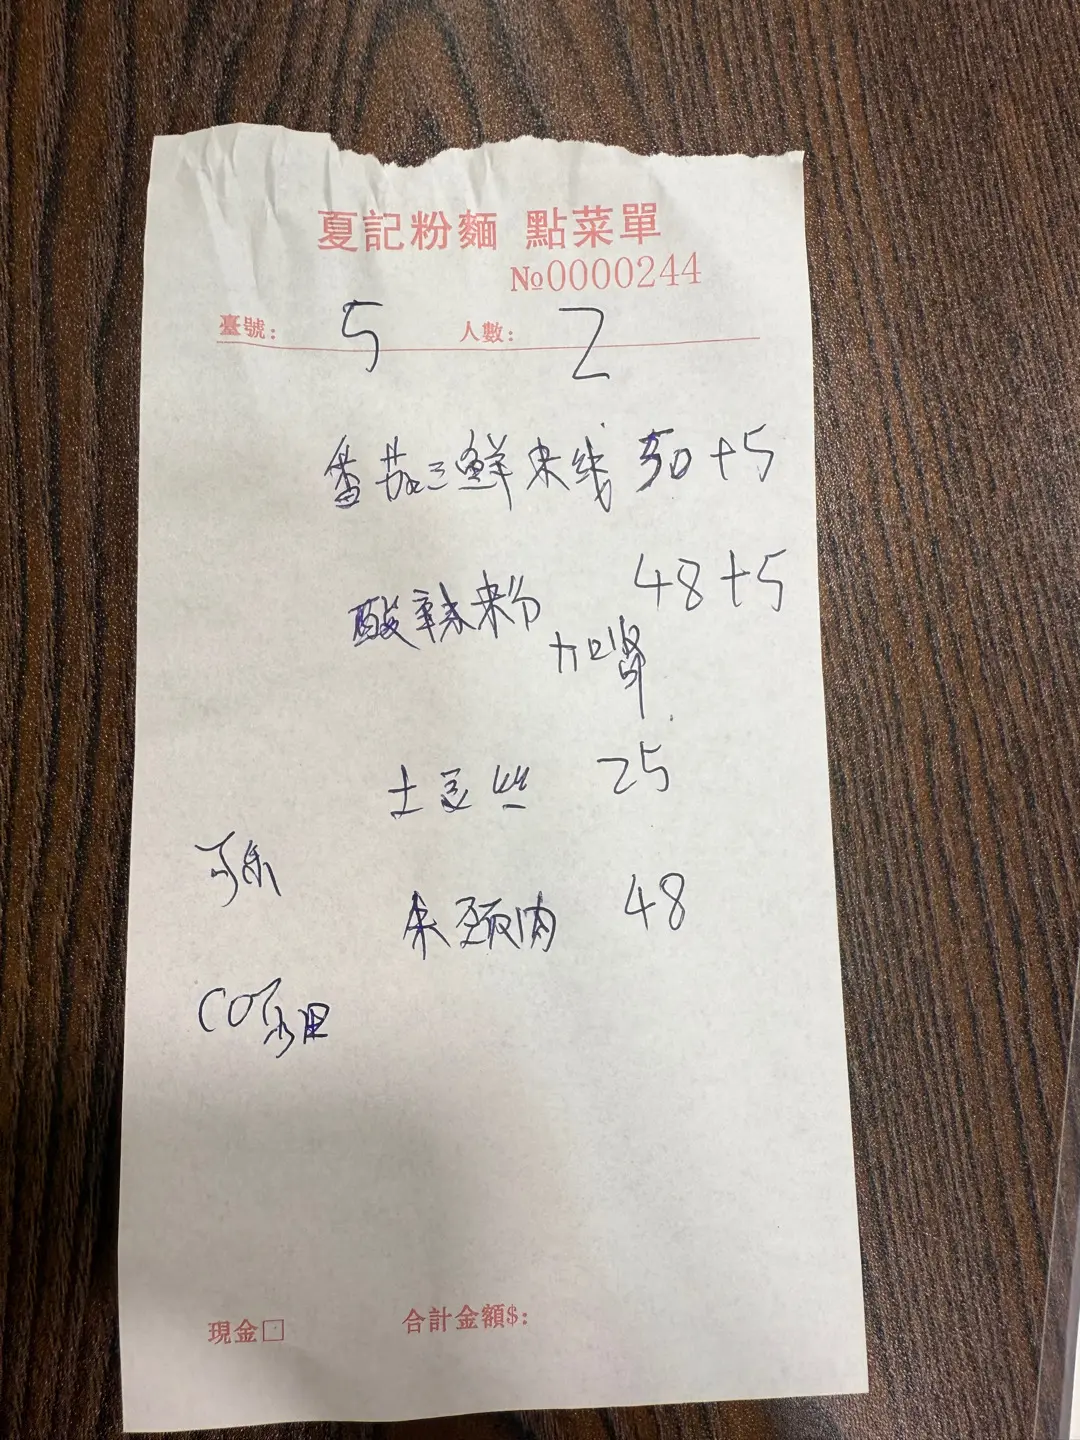 夏記粉麵 點菜單
№0000244
臺號: 5 人數: 2
番茄三鮮米线 50+5
酸辣粉 48+5
加腎
土豆丝 25
可乐
朱頸肉 48
CO
現金□ 合計金額$: